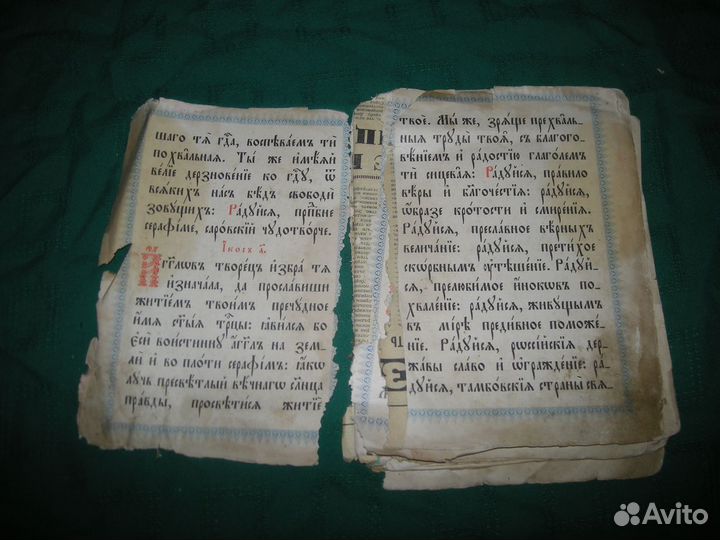 шаго тѧ̀ гд҇а, воспѣва́емъ ти̑
похва́льнаѧ. Ты́ же и҆мѣ́ѧй
ве́лїе дерзнове́нїе ко гд҇ꙋ, ѿ
всѧ́кихъ на́съ бѣ́дъ свободѝ
зовꙋ́щихъ: Ра́дꙋйсѧ, прп҇бне
серафі́ме, саро́вскїй чꙋдотво́рче.
І҆́косъ а҃.
А҆́гг҃лѡвъ творе́цъ и҆збра̀ тѧ̀
и҆знача́ла, да просла́виши
житїе́мъ твои́мъ пречꙋ́дное
и҆́мѧ ст҃ы́ѧ трⷪ҇цы: ꙗ҆ви́лсѧ бо
є҆сѝ вои́стиннꙋ а҆́гг҃лъ на зем_
лѝ и҆ во пло́ти серафі́мъ: ꙗ҆́кѡ
лꙋ́чь пресвѣ́тлый вѣ́чнагѡ сл҃нца
пра́вды, просвѣти́сѧ житїѐ
твоѐ. Мы́ же, зрѧ́ще прехва́ль_
ныѧ трꙋды̀ твоѧ̑, съ благого_
вѣ́нїемъ и҆ ра́достїю глаго́лемъ
ти̑ сицева́ѧ: Ра́дꙋйсѧ, пра́вило
вѣ́ры и҆ бл҃гоче́стїѧ: ра́дꙋйсѧ,
ѡ҆́бразе кро́тости и҆ смире́нїѧ.
Ра́дꙋйсѧ, пресла́вное вѣ́рныхъ
велича́нїе: ра́дꙋйсѧ, прети́хое
ско́рбнымъ ᲂу҆тѣше́нїе. Ра́дꙋй_
сѧ, прелюби́мое и҆́нокѡвъ по_
хвале́нїе: ра́дꙋйсѧ, живꙋ́щымъ
въ мі́рѣ преди́вное поможе́_
нїе. Ра́дꙋйсѧ, рѡссі́йскїѧ дер_
жа́вы сла́во и҆ ѡ҆гражде́нїе: ра́_
дꙋйсѧ, тамбо́вскїѧ страны̀ свѧ_
Avito